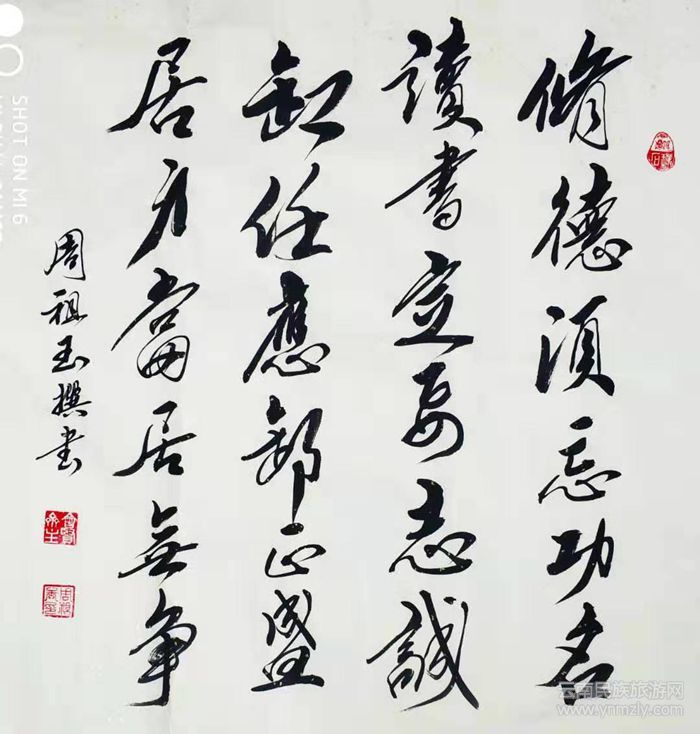 脩德須忘功名
讀書定要志誠
卸任應卸正盛
居身當居無爭
周祖玉撰書
SHOT ON MI 6
云南民族旅游网
www.ynmzly.com